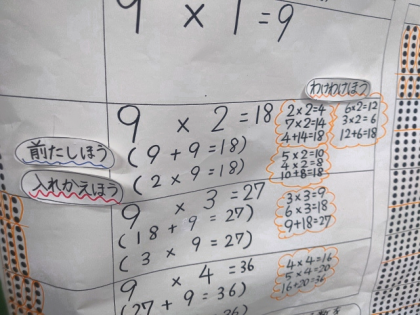 9 × 1 = 9
わけわけほう
9 × 2 = 18
(9 + 9 = 18)
(2 × 9 = 18)
前たしほう
入れかえほう
2 × 2 = 4
7 × 2 = 14
4 + 14 = 18
6 × 2 = 12
3 × 2 = 6
12 + 6 = 18
5 × 2 = 10
4 × 2 = 8
10 + 8 = 18
9 × 3 = 27
(18 + 9 = 27)
(3 × 9 = 27)
3 × 3 = 9
6 × 3 = 18
9 + 18 = 27
9 × 4 = 36
(27 + 9 = 36)
4 × 4 = 16
5 × 4 = 20
16 + 20 = 36